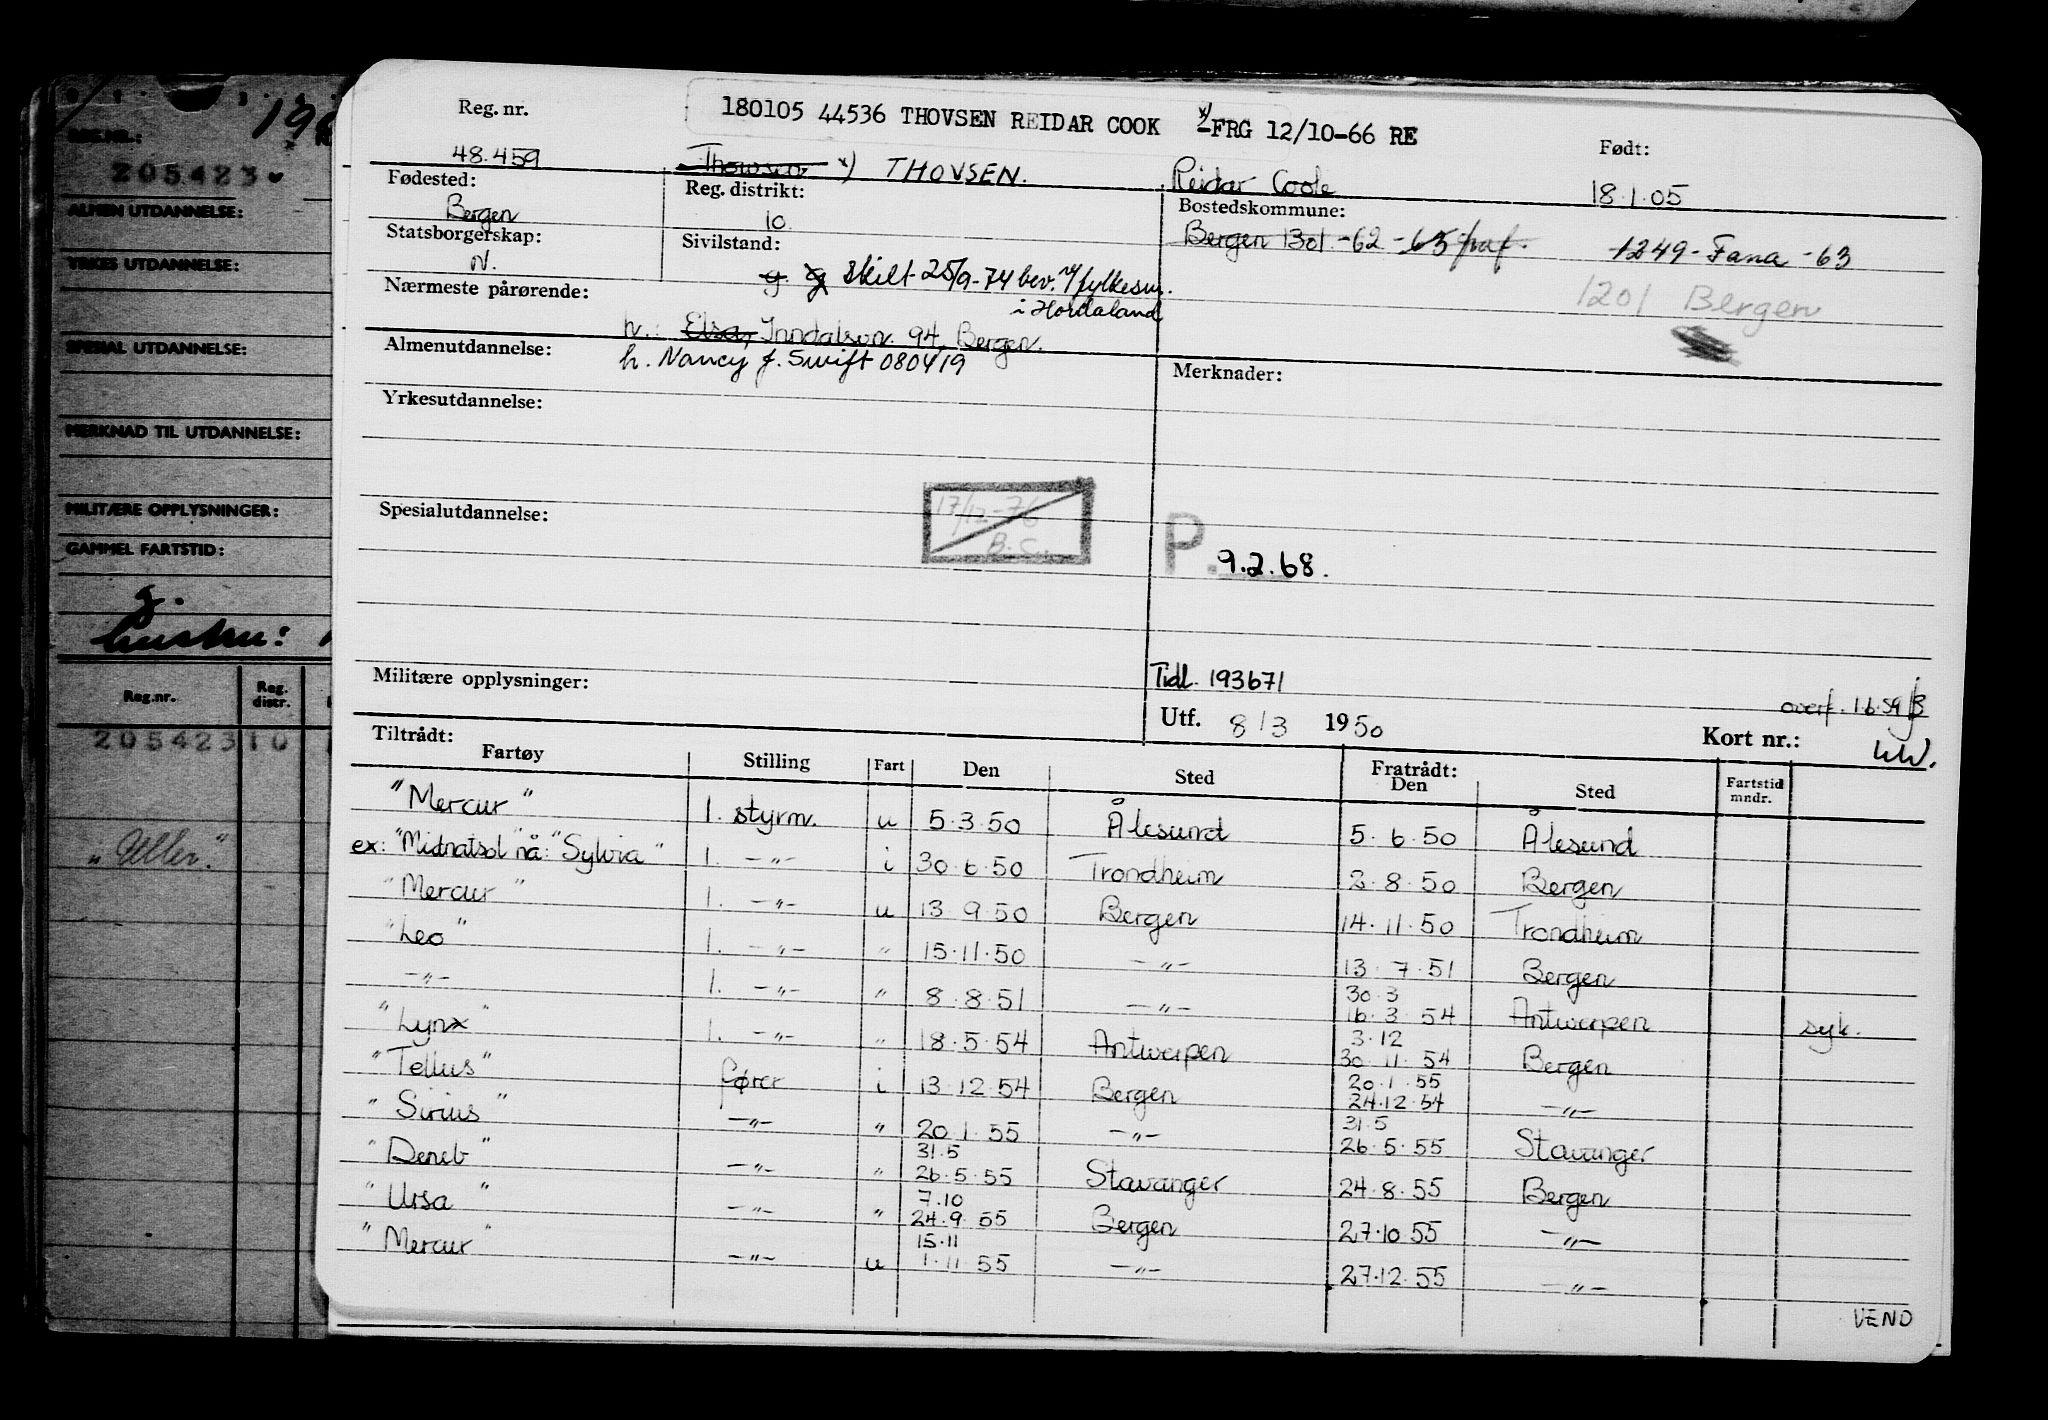 Reg. nr.
180105 44536 THOVSEN REIDAR COOK x/-FRG 12/10-66 RE
Født:
48.459
Thowsen x) THOVSEN.
Reidar Cook
18.1.05
Fødested:
Reg. distrikt:
Bostedskommune:
Bergen
10
Bergen 1301.-62 -63
1249-Fana-63
Statsborgerskap:
Sivilstand:
N.
g. g skilt 25/9-74 bev. v/fylkesm.
i Hordaland
1201 Bergen
Nærmeste pårørende:
h.: Elsa, Inndalsvn. 94, Bergen.
Almenutdannelse:
h. Nancy f. Swift 080419
Merknader:
Yrkesutdannelse:
Spesialutdannelse:
17/12-76
B.C.
P. 9.2.68.
Militære opplysninger:
Tidl. 193671
overf. 1.6.59/B
Utf. 8/3 1950
Kort nr.:
Tiltrådt:
Fartøy Stilling Fart Den Sted Fratrådt: Den Sted Fartstid mndr.
"Mercur" 1. styrm. u 5.3.50 Ålesund 5.6.50 Ålesund
ex: "Midnatsol" nå: "Sylvia" 1. -"- i 30.6.50 Trondheim 2.8.50 Bergen
"Mercur" 1. -"- u 13.9.50 Bergen 14.11.50 Trondheim
"Leo" 1. -"- " 15.11.50 -"- 13.7.51 Bergen
-"- 1. -"- " 8.8.51 -"- 30.3 16.3.54 Antwerpen syk.
"Lynx" 1. -"- " 18.5.54 Antwerpen 3.12 30.11.54 Bergen
"Tellus" fører i 13.12.54 Bergen 20.1.55 24.12.54 -"-
"Sirius" -"- " 20.1.55 -"- 31.5 26.5.55 Stavanger
"Deneb" -"- " 31.5 26.5.55 Stavanger 24.8.55 Bergen
"Ursa" -"- " 7.10 24.9.55 Bergen 27.10.55 -"-
"Mercur" -"- u 15.11 1.11.55 -"- 27.12.55 -"-
VEND
205423
ALMEN UTDANNELSE:
YRKES UTDANNELSE:
SPESIAL UTDANNELSE:
MERKNAD TIL UTDANNELSE:
MILITÆRE OPPLYSNINGER:
GAMMEL FARTSTID:
g.
hustru:
Reg.nr. Reg. distr.
205423 10
"Uller".